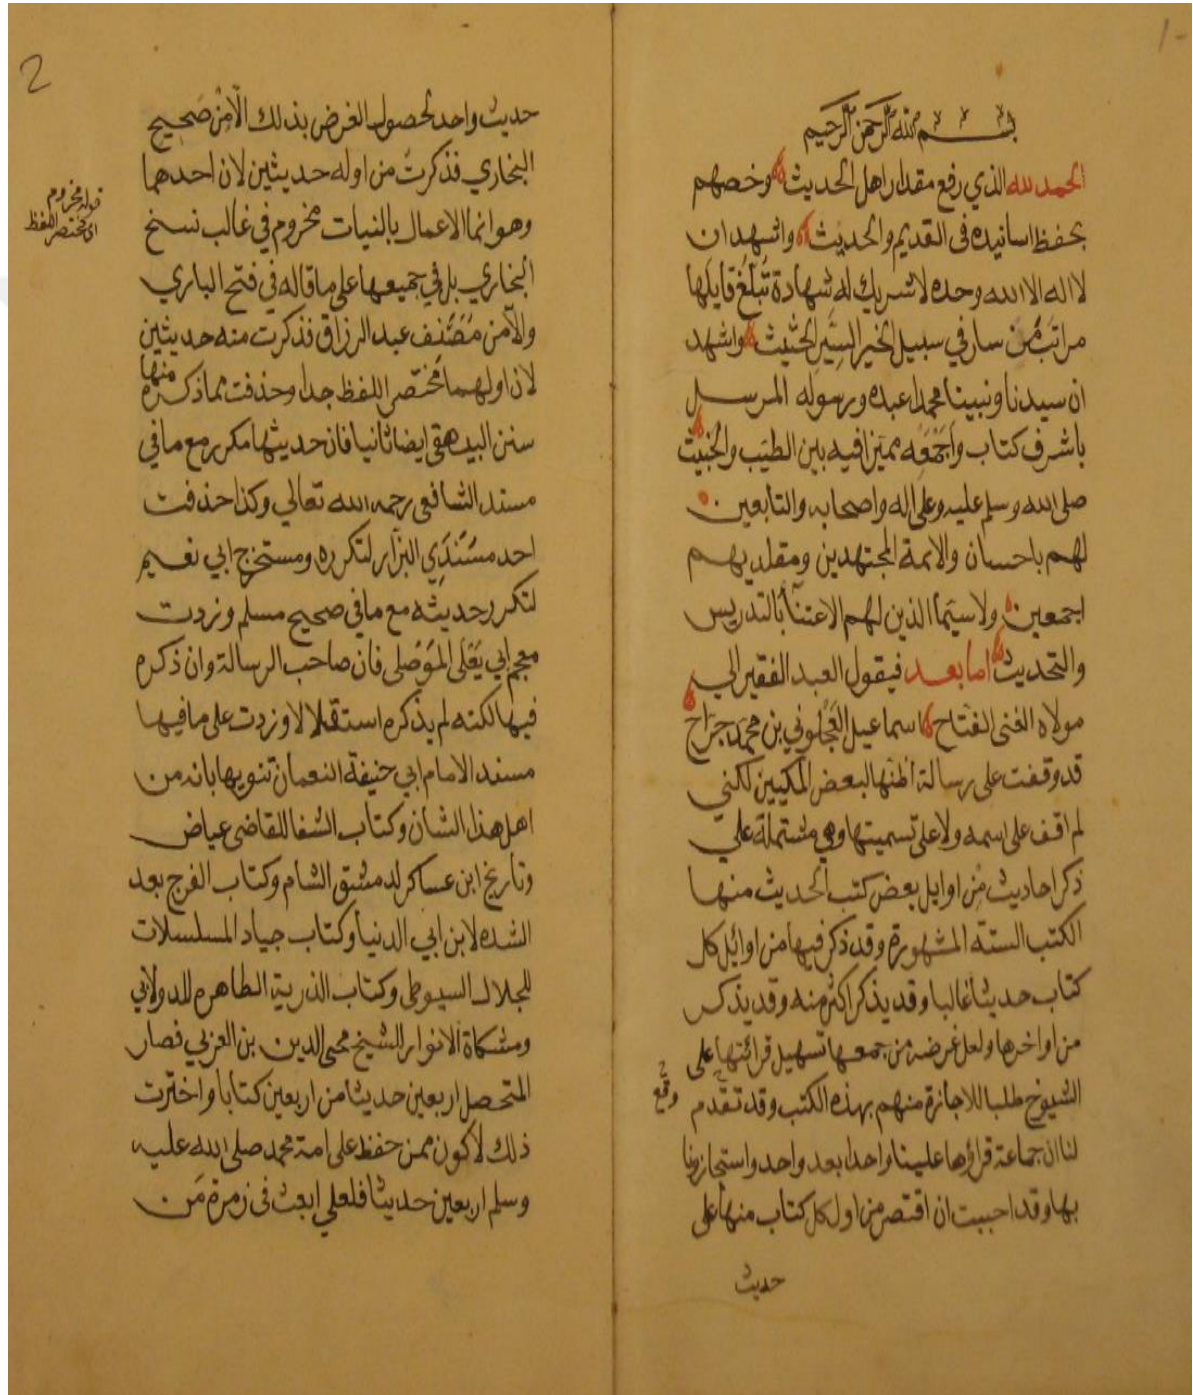 بسم الله الرحمن الرحيم
الحمد لله الذي رفع مقدار اهل الحديث وخصهم
بحفظ اسانيده فى القديم والحديث واشهد ان
لا اله الا الله وحده لا شريك له شهادة تُبلّغ قايلها
مراتب مَن سار في سبيل الخير السَّيرِ الحثيث واشهد
ان سيدنا ونبينا محمدا عبده ورسوله المرسل
باشرف كتاب واَجْمَعِه مميّزا فيه بين الطيّب والخبيث
صلى الله وسلم عليه وعلى اله واصحابه والتابعين
لهم باحسان والائمة المجتهدين ومقلديهم
اجمعين ولا سيّما الذين لهم الاعتناء بالتدريس
والتحديث اما بعد فيقول العبد الفقير الي
مولاه الغنى الفتاح اسماعيل العَجْلوني بن محمد جرّاح
قد وقفت على رسالة اظنها لبعض المكيين لكني
لم اقف على اسمه ولا على تسميتها وهي مشتملة علي
ذكر احاديث مِن اوايل بعض كتب الحديث منها
الكتب الستة المشهورة وقد ذكر فيها من اوائل كل
كتاب حديثا غالبا وقد يذكر اكثر منه وقد يذكر
من اواخرها ولعل غرضه من جمعها تسهيل قرائتها على
الشيوخ طلبا للاجازة منهم بهذه الكتب وقد تقدم
وقع
لنا ان جماعة قراؤها علينا واحدا بعد واحد واستجازونا
بها وقد احببت ان اقتصر من اول كل كتاب منها على
حديث
2
حديث واحد لحصول الغرض بذلك الّا مِنْ صحيح
البخاري فذكرت من اوله حديثين لان احدهما
وهو انما الاعمال بالنيات مخروم في غالب نسخ
قوله مخروم
اي مختصر اللفظ
البخاري بل في جميعها على ما قاله في فتح الباري
والّا من مُصَنَّف عبد الرزاق فذكرت منه حديثين
لان اولهما مُختصر اللفظ جدا وحذفت مما ذكره
منها
سنن البيهقي ايضا ثانيا فان حديثها مكرر مع ما في
مسند الشافعى رحمه الله تعالي وكذا حذفت
احد مسْنَدَي البزّار لتكرره ومستخرج ابي نعيم
لتكرر حديثه مع ما في صحيح مسلم وزدت
معجم ابي يَعْلى المَوْصلى فان صاحب الرسالة وان ذكره
فيها لكنه لم يذكره استقلالا وزدت على ما فيها
مسند الامام ابي حنيفة النعمان تنويها بانه من
اهل هذا الشان وكتاب الشفا للقاضى عياض
وتاريخ ابن عساكر لدمشق الشام وكتاب الفرج بعد
الشده لابن ابي الدنيا وكتاب جياد المسلسلات
للجلال السيوطى وكتاب الذرية الطاهره للدولابي
ومشكاة الانوار للشيخ محي الدين بن العربي فصار
المتحصل اربعين حديثا من اربعين كتابا واخترت
ذلك لاكون ممن حفظ على امة محمد صلى الله عليه
وسلم اربعين حديثا فلعلي ابعث فى زمرة مَن